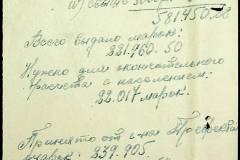 581450
Всего выдано марок:
221.960.50
Нужно для окончательного
расчета с населением:
22.017 марок.
Принято от г-на
марок: 239.905